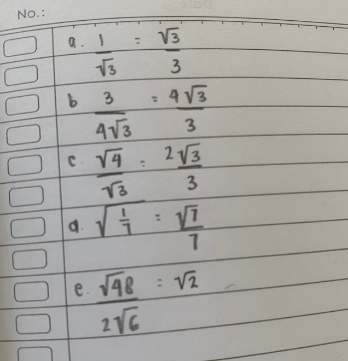 No.:
a. 1/√3 = √3/3
b 3/4√3 = 4√3/3
c. √4/√3 = 2√3/3
d. √(1/7) = √7/7
e. √48/2√6 = √2